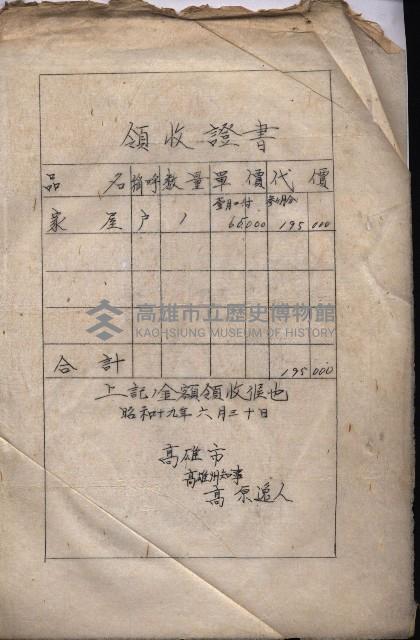 領收證書
品名 稱呼 數量 單價 代價
壹月ニ付 參ヶ月分
家屋 戶 1 65,000 195 000
高雄市立歷史博物館
KAOHSIUNG MUSEUM OF HISTORY
合計 195 000
上記ノ金額領收候也
昭和十九年六月三十日
高雄市
高雄州知事
高原逸人